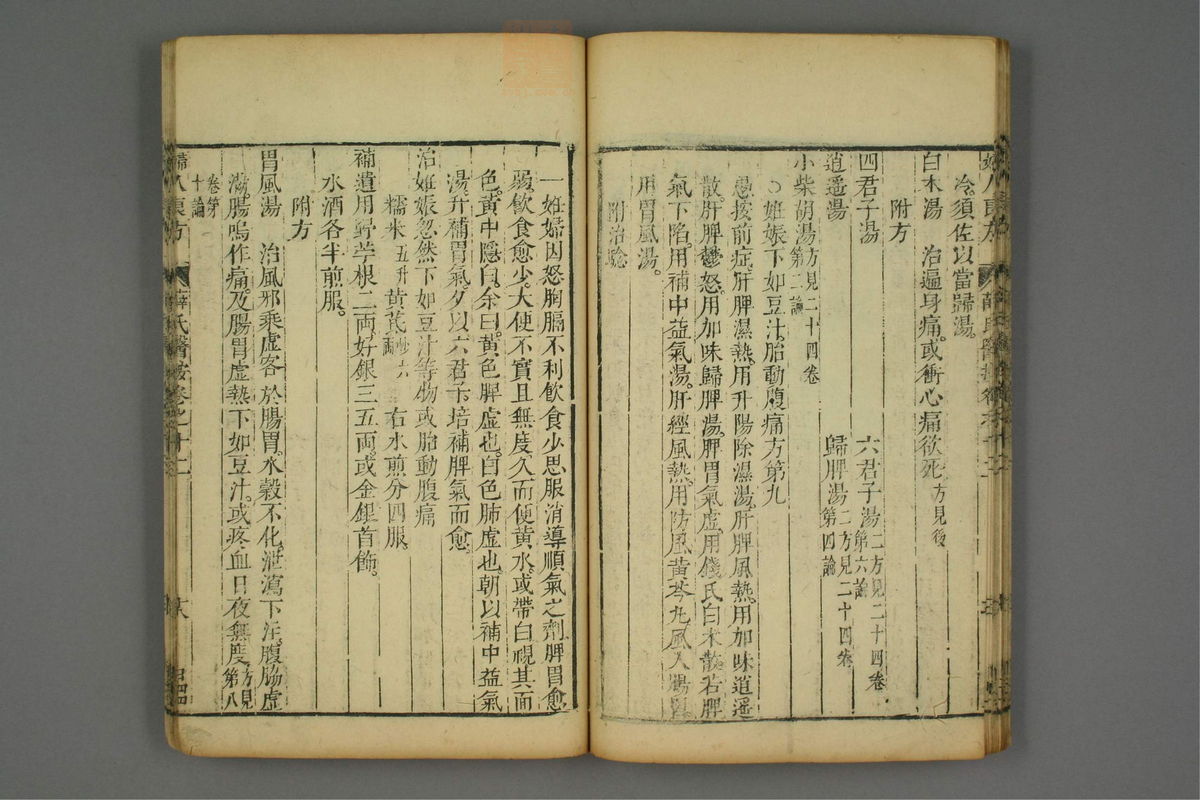 冷須佐以當歸湯。
白术湯　治遍身痛。或衝心痛欲死方見後
附方
四君子湯　六君子湯二方見二十四卷第六論
逍遥湯　歸脾湯二方見二十四卷第四論
小柴胡湯方見二十四卷第二論
○妊娠下如豆汁。胎動腹痛方第九
愚按前症。肝脾濕熱。用升陽除濕湯。肝脾風熱。用加味逍遥
散。肝脾鬱怒。用加味歸脾湯。脾胃氣虛。用錢氏白术散。若脾
氣下陷。用補中益氣湯。肝經風熱。用防風黄芩丸。風入腸胃。
用胃風湯。
附治驗
一妊婦因怒胸膈不利飲食少思服消導順氣之劑脾胃愈
弱。飲食愈少。大便不實且無度久而便黄水。或帶白視其面
色。黄中隱白。余曰。黄色脾虛也。白色肺虛也。朝以補中益氣
湯。升補胃氣。夕以六君子培補脾氣而愈
治妊娠忽然下如豆汁等物或胎動腹痛
糯米五升黄茋六兩右水煎分四服。
補遺用野苧根二兩。好銀三五兩。或金銀首飾。
水酒各半煎服。
附方
胃風湯　治風邪乘虛客於腸胃。水穀不化。泄瀉下注。腹脇虛
滿。腸鳴作痛。及腸胃虛熱下如豆汁。或疼血日夜無度方見第八
卷第十論
婦人良方　薛氏醫按卷之十二　六